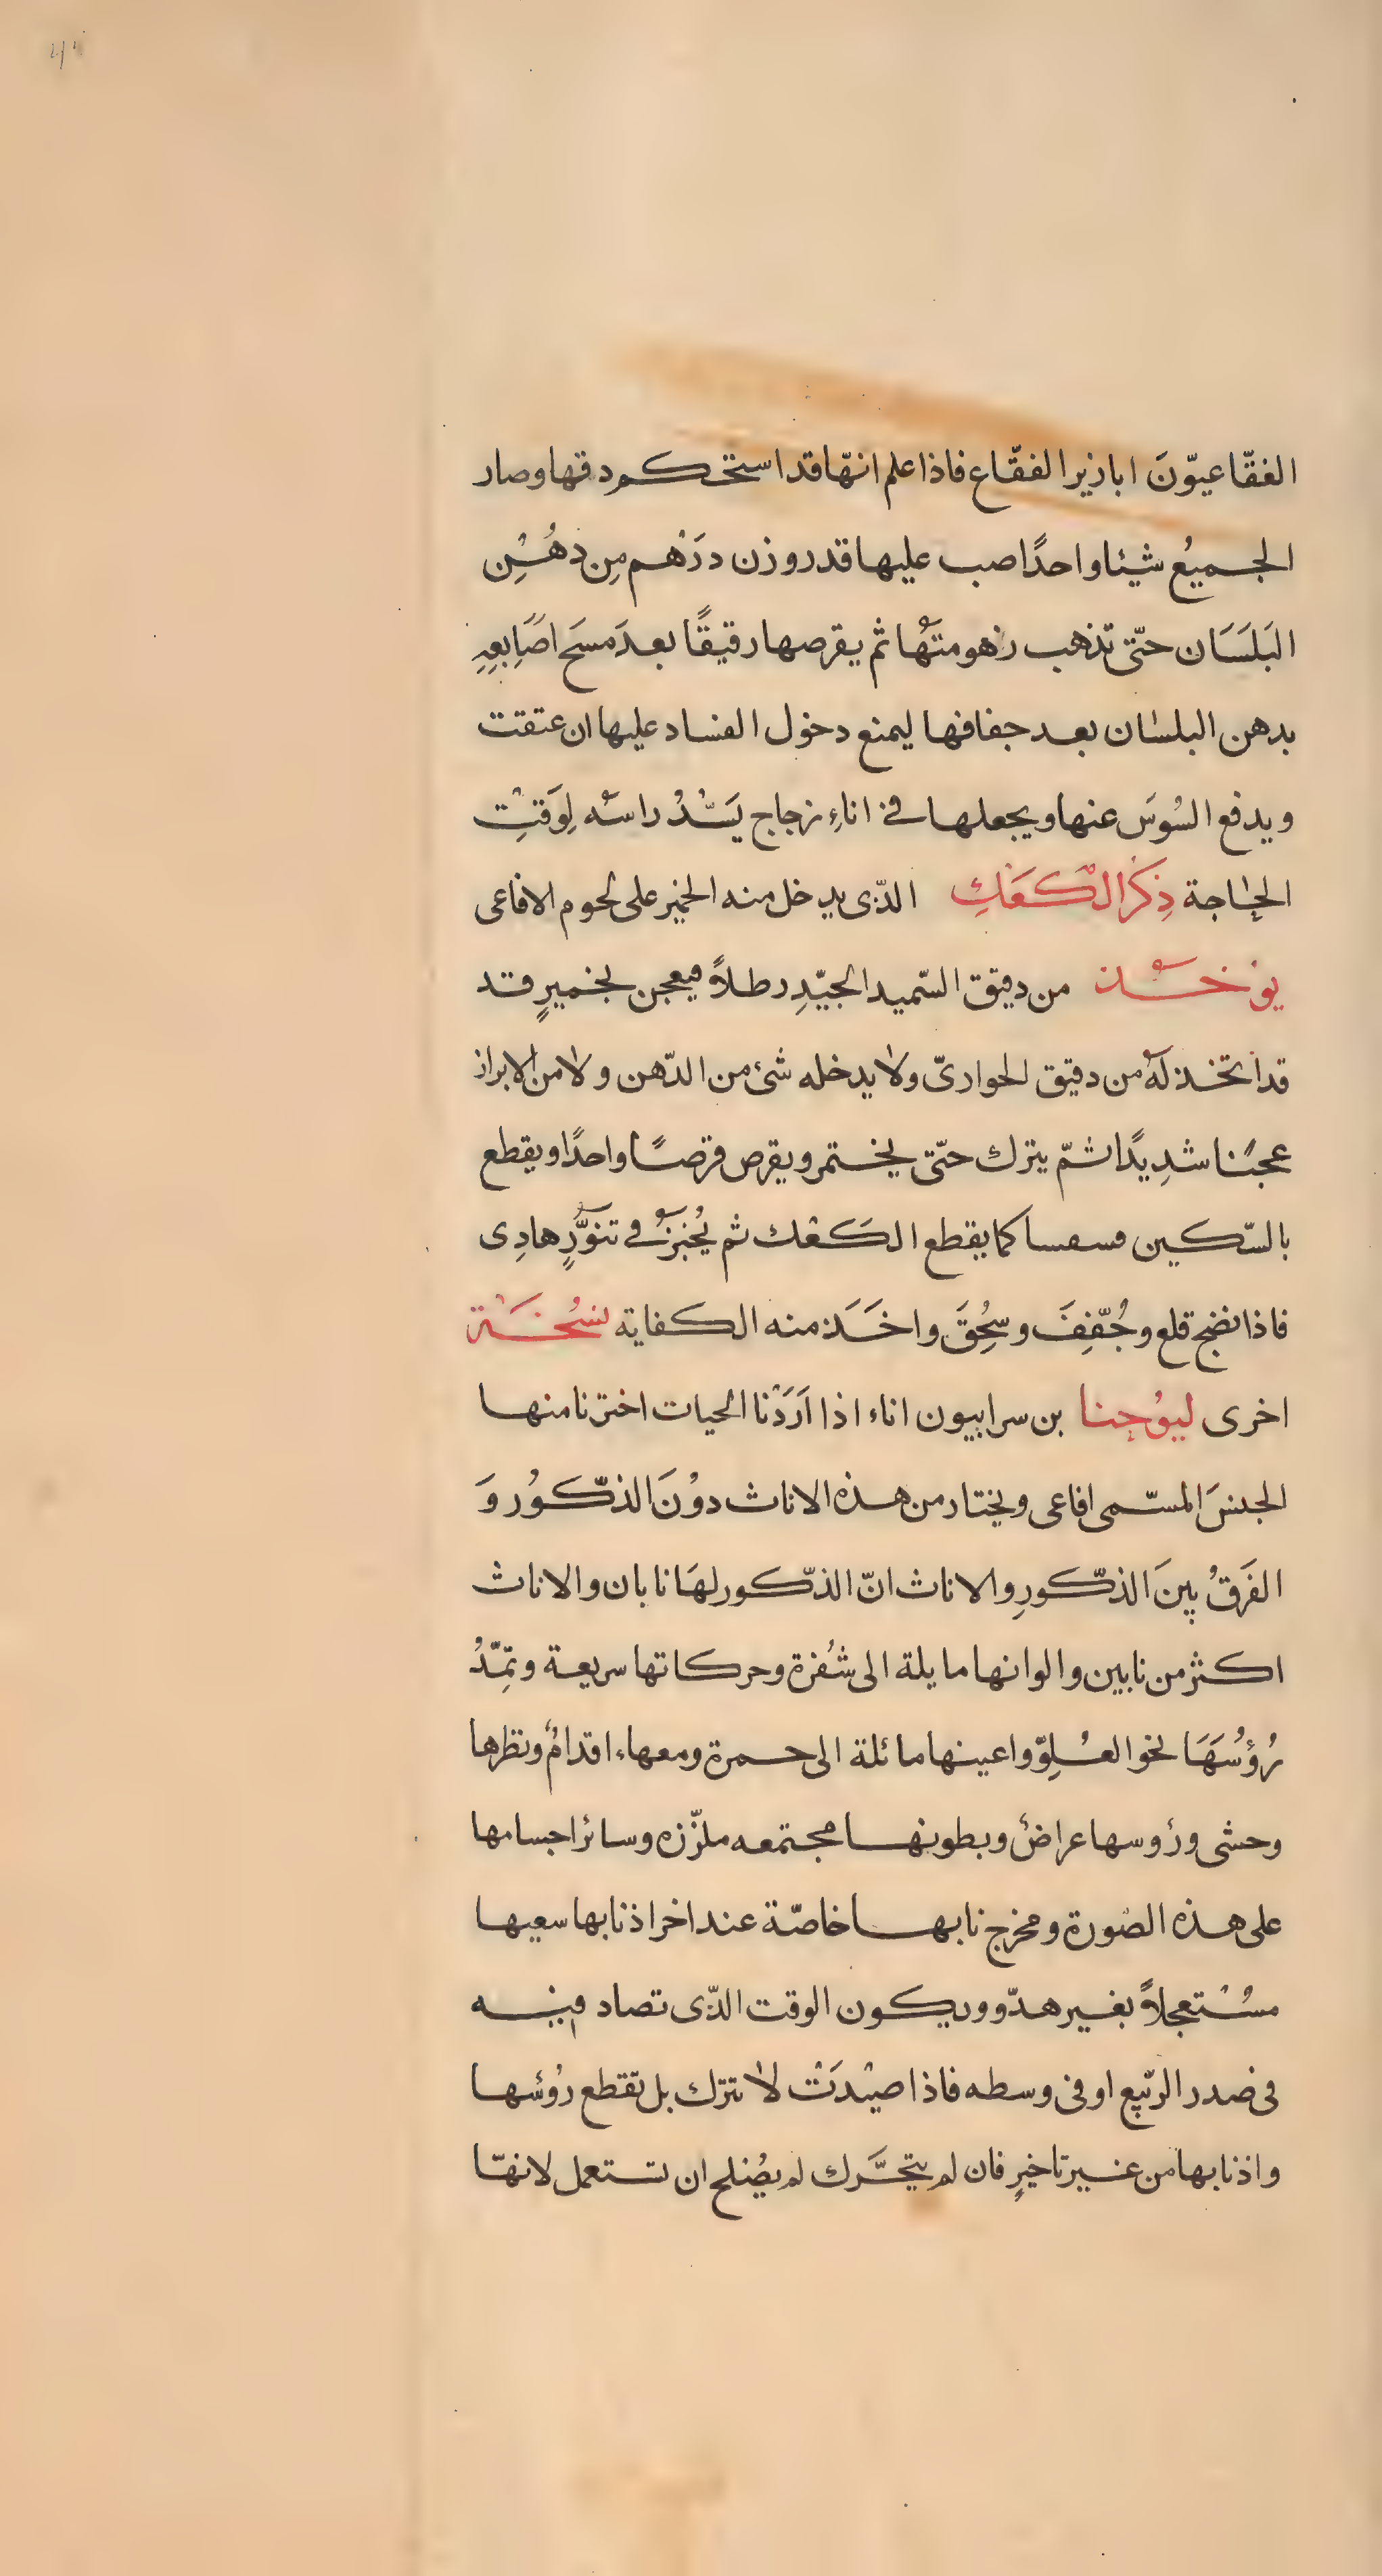 الفقّاعيوّنَ ابازيرا لفقّاع فاذا علم انهّا قد استحكم دقها وصار
الجميعُ شيئا واحدًا صب عليها قدر وزن درْهم مِن دهُنِ
البَلَسَان حتّى تذهب زهومتهُا ثم يقرصها رقيقًا بعدَ مسحَ اصَابعِهِ
بدهن البلسان بعد جفافها ليمنع دخول الفساد عليها ان عتقت
ويدفع السُوسَ عنها ويجعلها في اناءِ زجاج يَسّدُ راسه لِوَقتِ
الحاجة ذِكرَ الْكعَكِ الذّى يدخل منه الخمير على لحوم الافاعى
يوْخَذ من دقيق السّميد الجيّدِ رطلاً فيعجن بخميرٍ قد
قد اتخذ لهُ من دقيق الحوارىّ ولا يدخله شئ من الدّهن ولا من الابراز
عجنًا شدِيدًا ثمّ يترك حتّى يختمر ويقرص قرصًا واحدًا ويقطع
بالسّكين كما يقطع الكَعْك ثم يُخبزُ في تنوّرٍ هادِى
فاذا نضج قلع وجُفّفِفَ وسُحِقَ واخَذ منه الكفاية نسُخَة
اخرى ليوُحنا بن سرابيون اناء اذا اَرَدْنا الحيات اخترنا منها
الجنسَ المسّمى افاعى ويختار من هذه الاناث دوُنَ الذّكوُر وَ
الفَرَقُ بينَ الذّكورِ والاناث انّ الذّكور لهَا نابان والاناث
اكثر من نابين والوانها مايلة الى شُفرة وحركاتها سريعة وتمِّدُ
رُؤسُهَا نحو العُلِوّ واعينها مائلة الى حمرة ومعهاء اقدامٌ ونظرها
وحشى ورؤسها عراضٌ وبطونها مجتمعه ملزّزه وسائر اجسامها
على هذه الصّورة ومخرج نابها خاصّة عند اخر اذنابها سعيها
مسُتعجلاً بغير هدّو ويكون الوقت الذّى تصاد فيه
فى صدر الرّبيع او فى وسطه فاذا صيْدَتْ لا تترك بل تقطع رؤسُها
واذنابها من غير تاخيرٍ فان لم يتحَّرك لم يصُلح ان تستعمل لانهّا